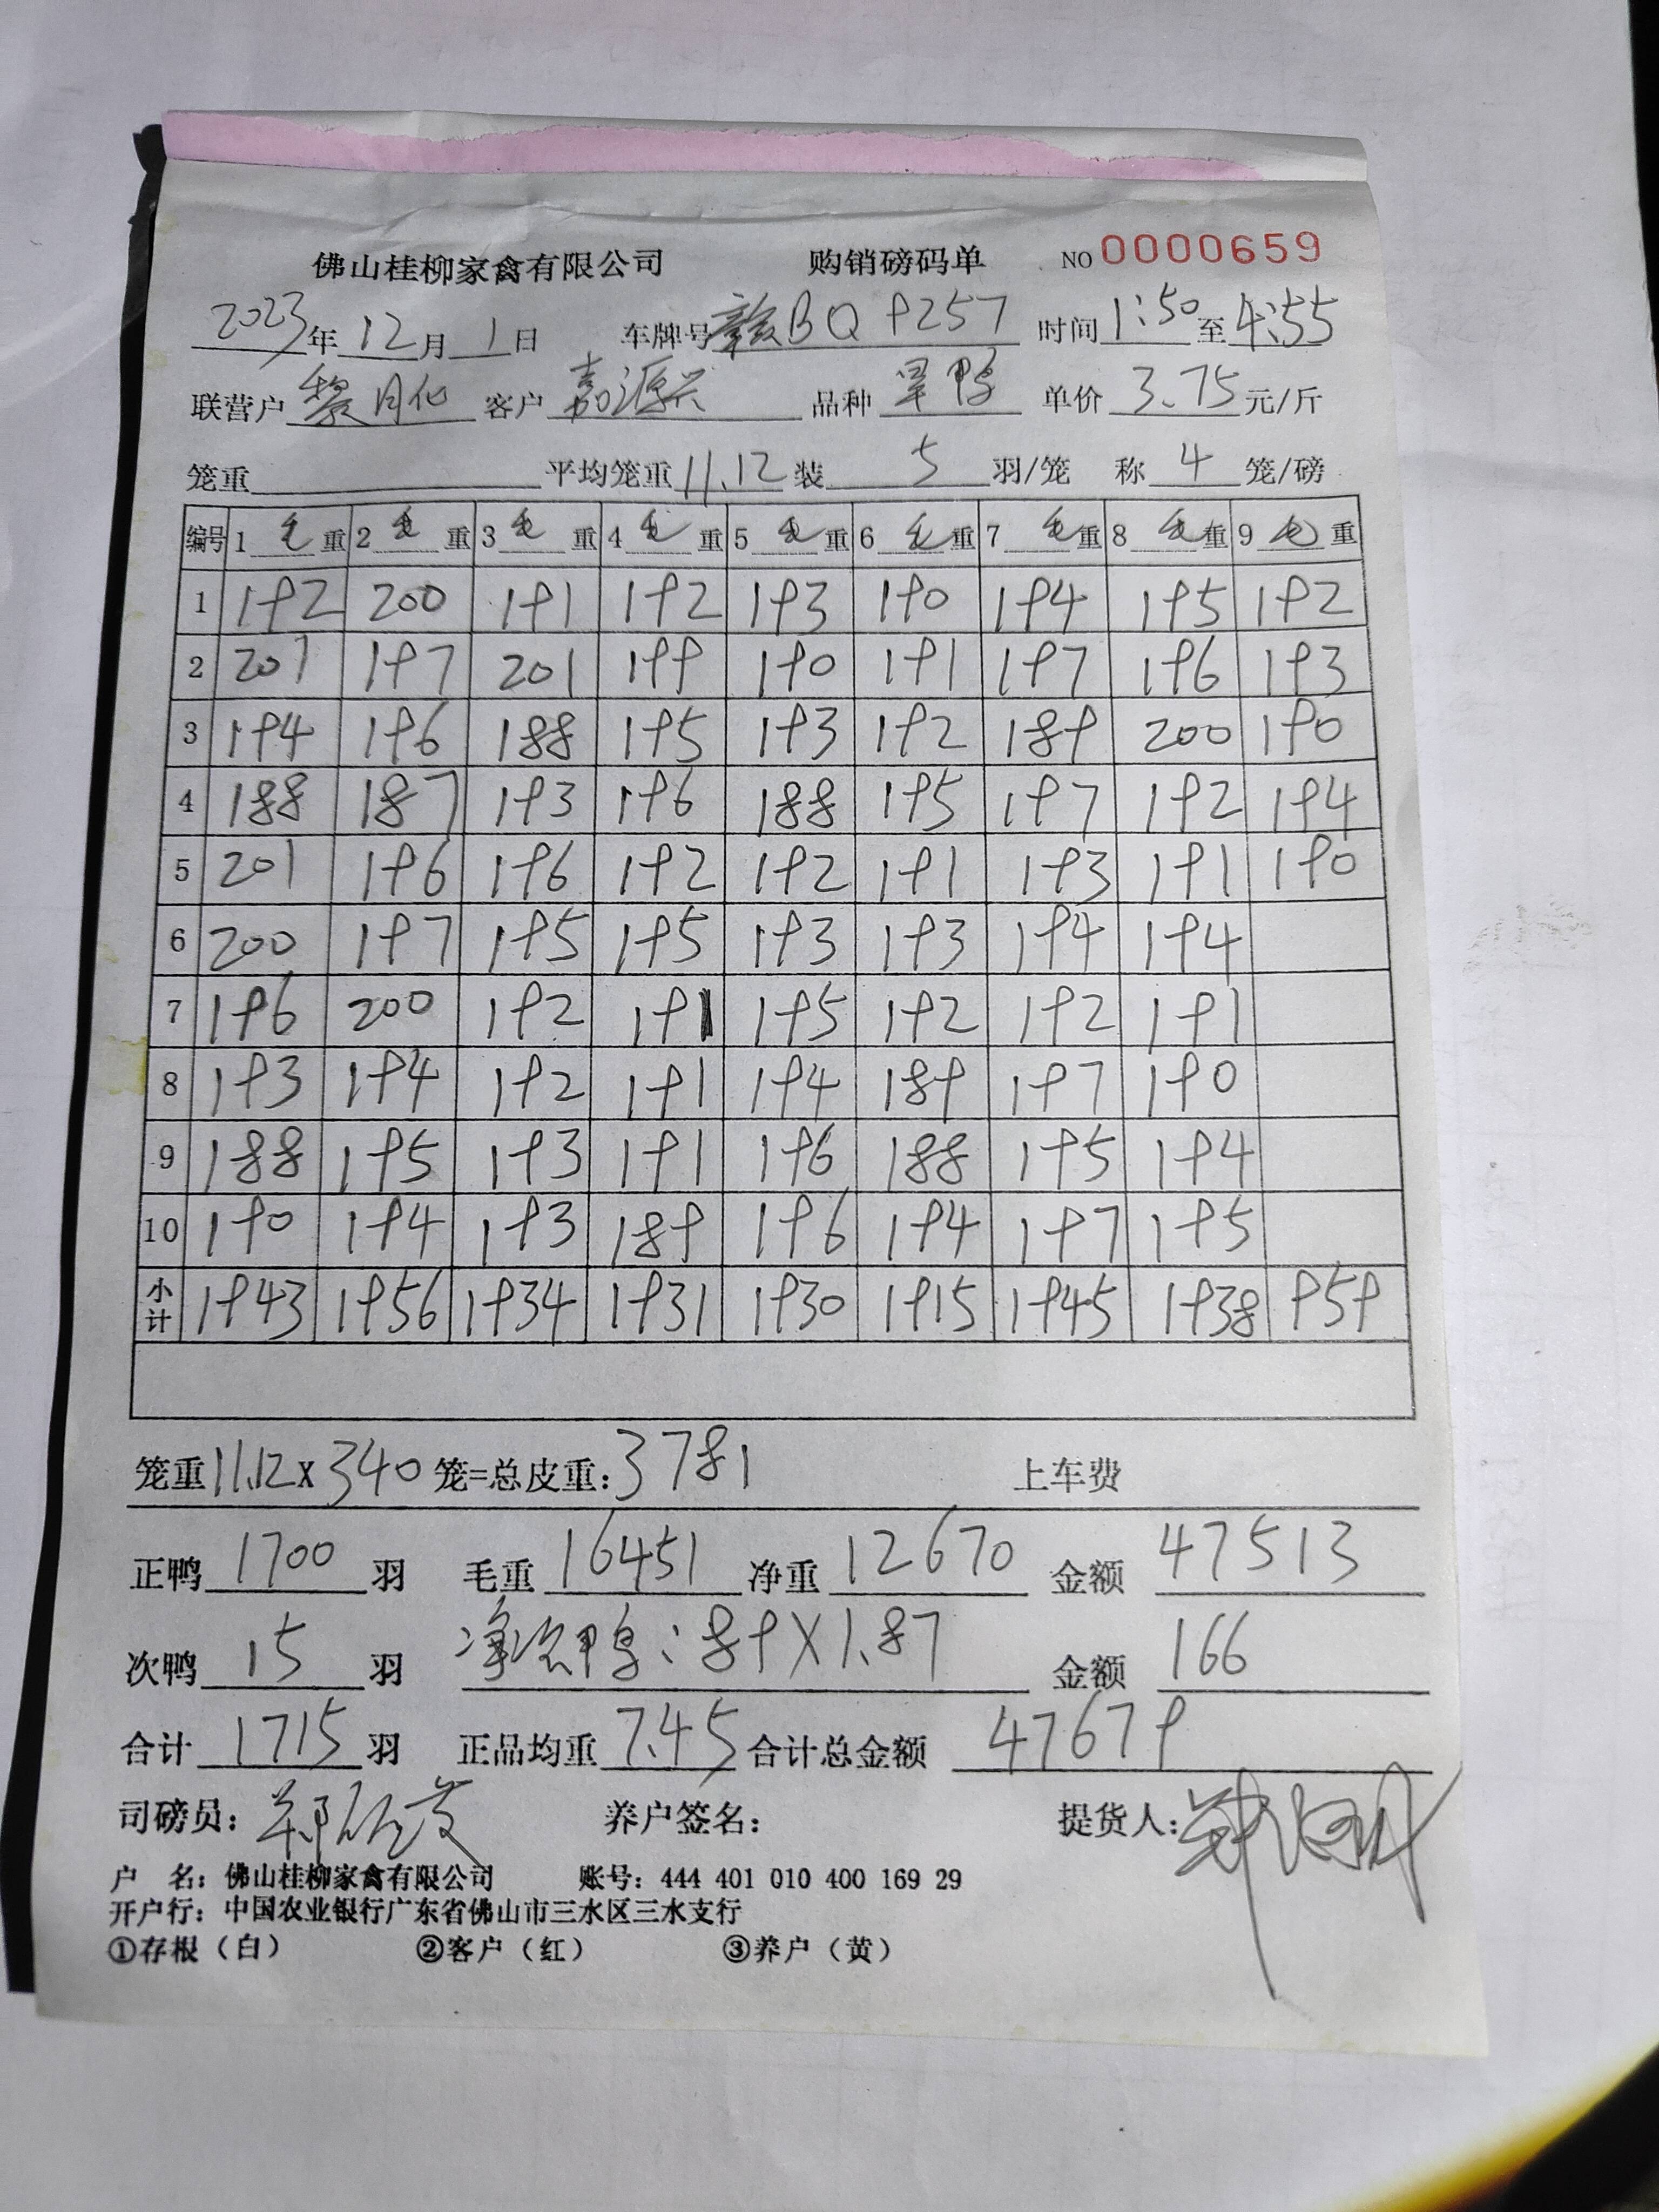 佛山桂柳家禽有限公司 购销磅码单 NO 0000659
2023年12月1日 车牌号赣BQ9257 时间1:50至4:55
联营户黎月化 客户嘉源兴 品种旱鸭 单价3.75元/斤
笼重 平均笼重11.12装5羽/笼 称4笼/磅
编号 1毛重 2毛重 3毛重 4毛重 5毛重 6毛重 7毛重 8毛重 9毛重
1 192 200 191 192 193 190 194 195 192
2 201 197 201 199 190 191 197 196 193
3 194 196 188 195 193 192 189 200 190
4 188 187 193 196 188 195 197 192 194
5 201 196 196 192 192 191 193 191 190
6 200 197 195 195 193 193 194 194
7 196 200 192 191 195 192 192 191
8 193 194 192 191 194 189 197 190
9 188 195 193 191 196 188 195 194
10 190 194 193 189 196 194 197 195
小计 1943 1956 1934 1931 1930 1915 1945 1938 959
笼重11.12x340笼=总皮重:3781 上车费
正鸭1700羽 毛重16451 净重12670 金额47513
次鸭15羽 净次鸭:89X1.87 金额166
合计1715羽 正品均重7.45合计总金额47679
司磅员: 养户签名: 提货人:
户 名:佛山桂柳家禽有限公司 账号:444 401 010 400 169 29
开户行:中国农业银行广东省佛山市三水区三水支行
①存根(白) ②客户(红) ③养户(黄)